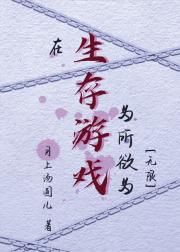 在
生存游戏
为所欲为
【无限】
月上汤圆儿 著